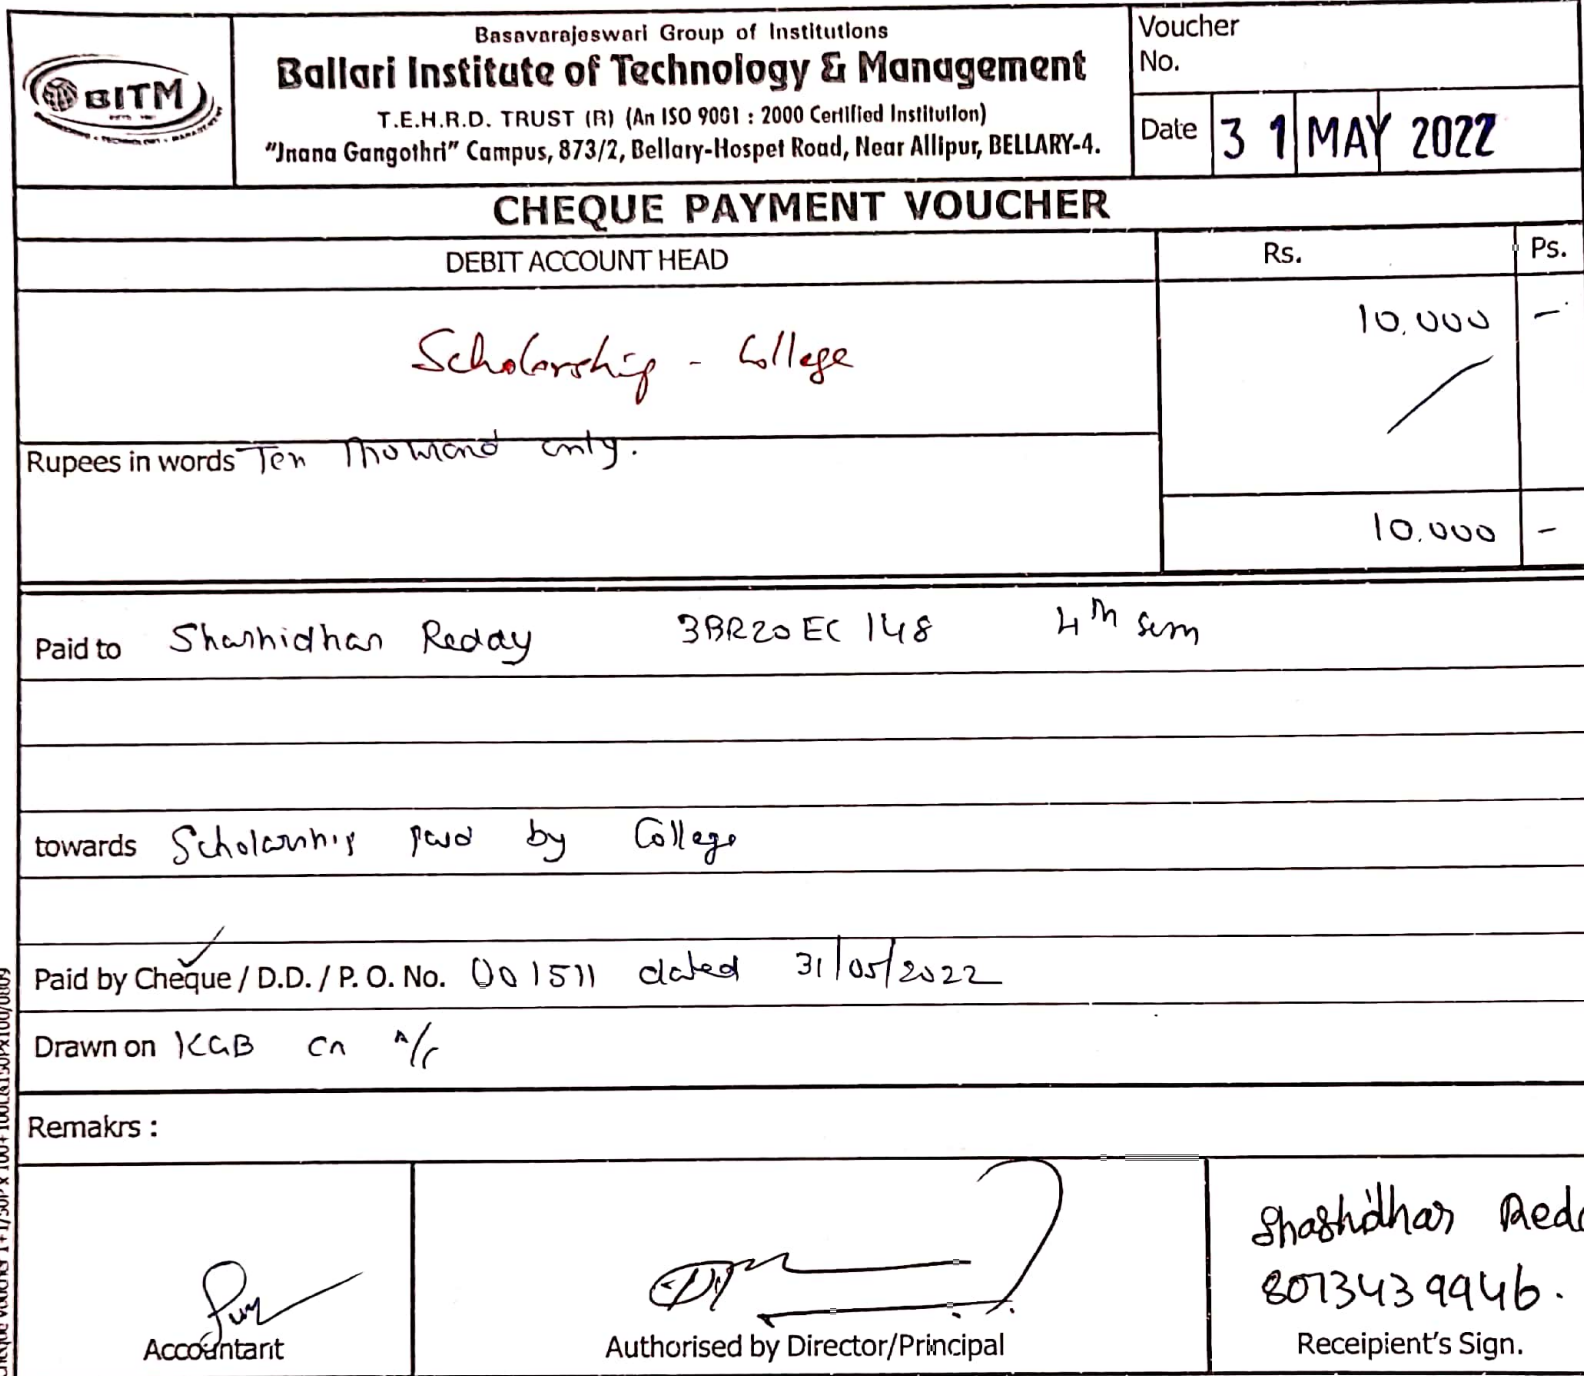 BITM
Basavarajeswari Group of Institutions
Ballari Institute of Technology & Management
T.E.H.R.D. TRUST (R) (An ISO 9001 : 2000 Certified Institution)
"Jnana Gangothri" Campus, 873/2, Bellary-Hospet Road, Near Allipur, BELLARY-4.
Voucher
No.
Date 31 MAY 2022
CHEQUE PAYMENT VOUCHER
DEBIT ACCOUNT HEAD Rs. Ps.
Scholarship - College 10.000 -
Rupees in words Ten Thousand only.
10.000 -
Paid to Shashidhar Reddy 3BR20EC148 4th sem
towards Scholarship paid by College
Paid by Cheque / D.D. / P. O. No. 001511 dated 31/05/2022
Drawn on KGB cn A/c
Remakrs :
Shashidhar Redd
8073439946.
Accountant Authorised by Director/Principal Receipient's Sign.